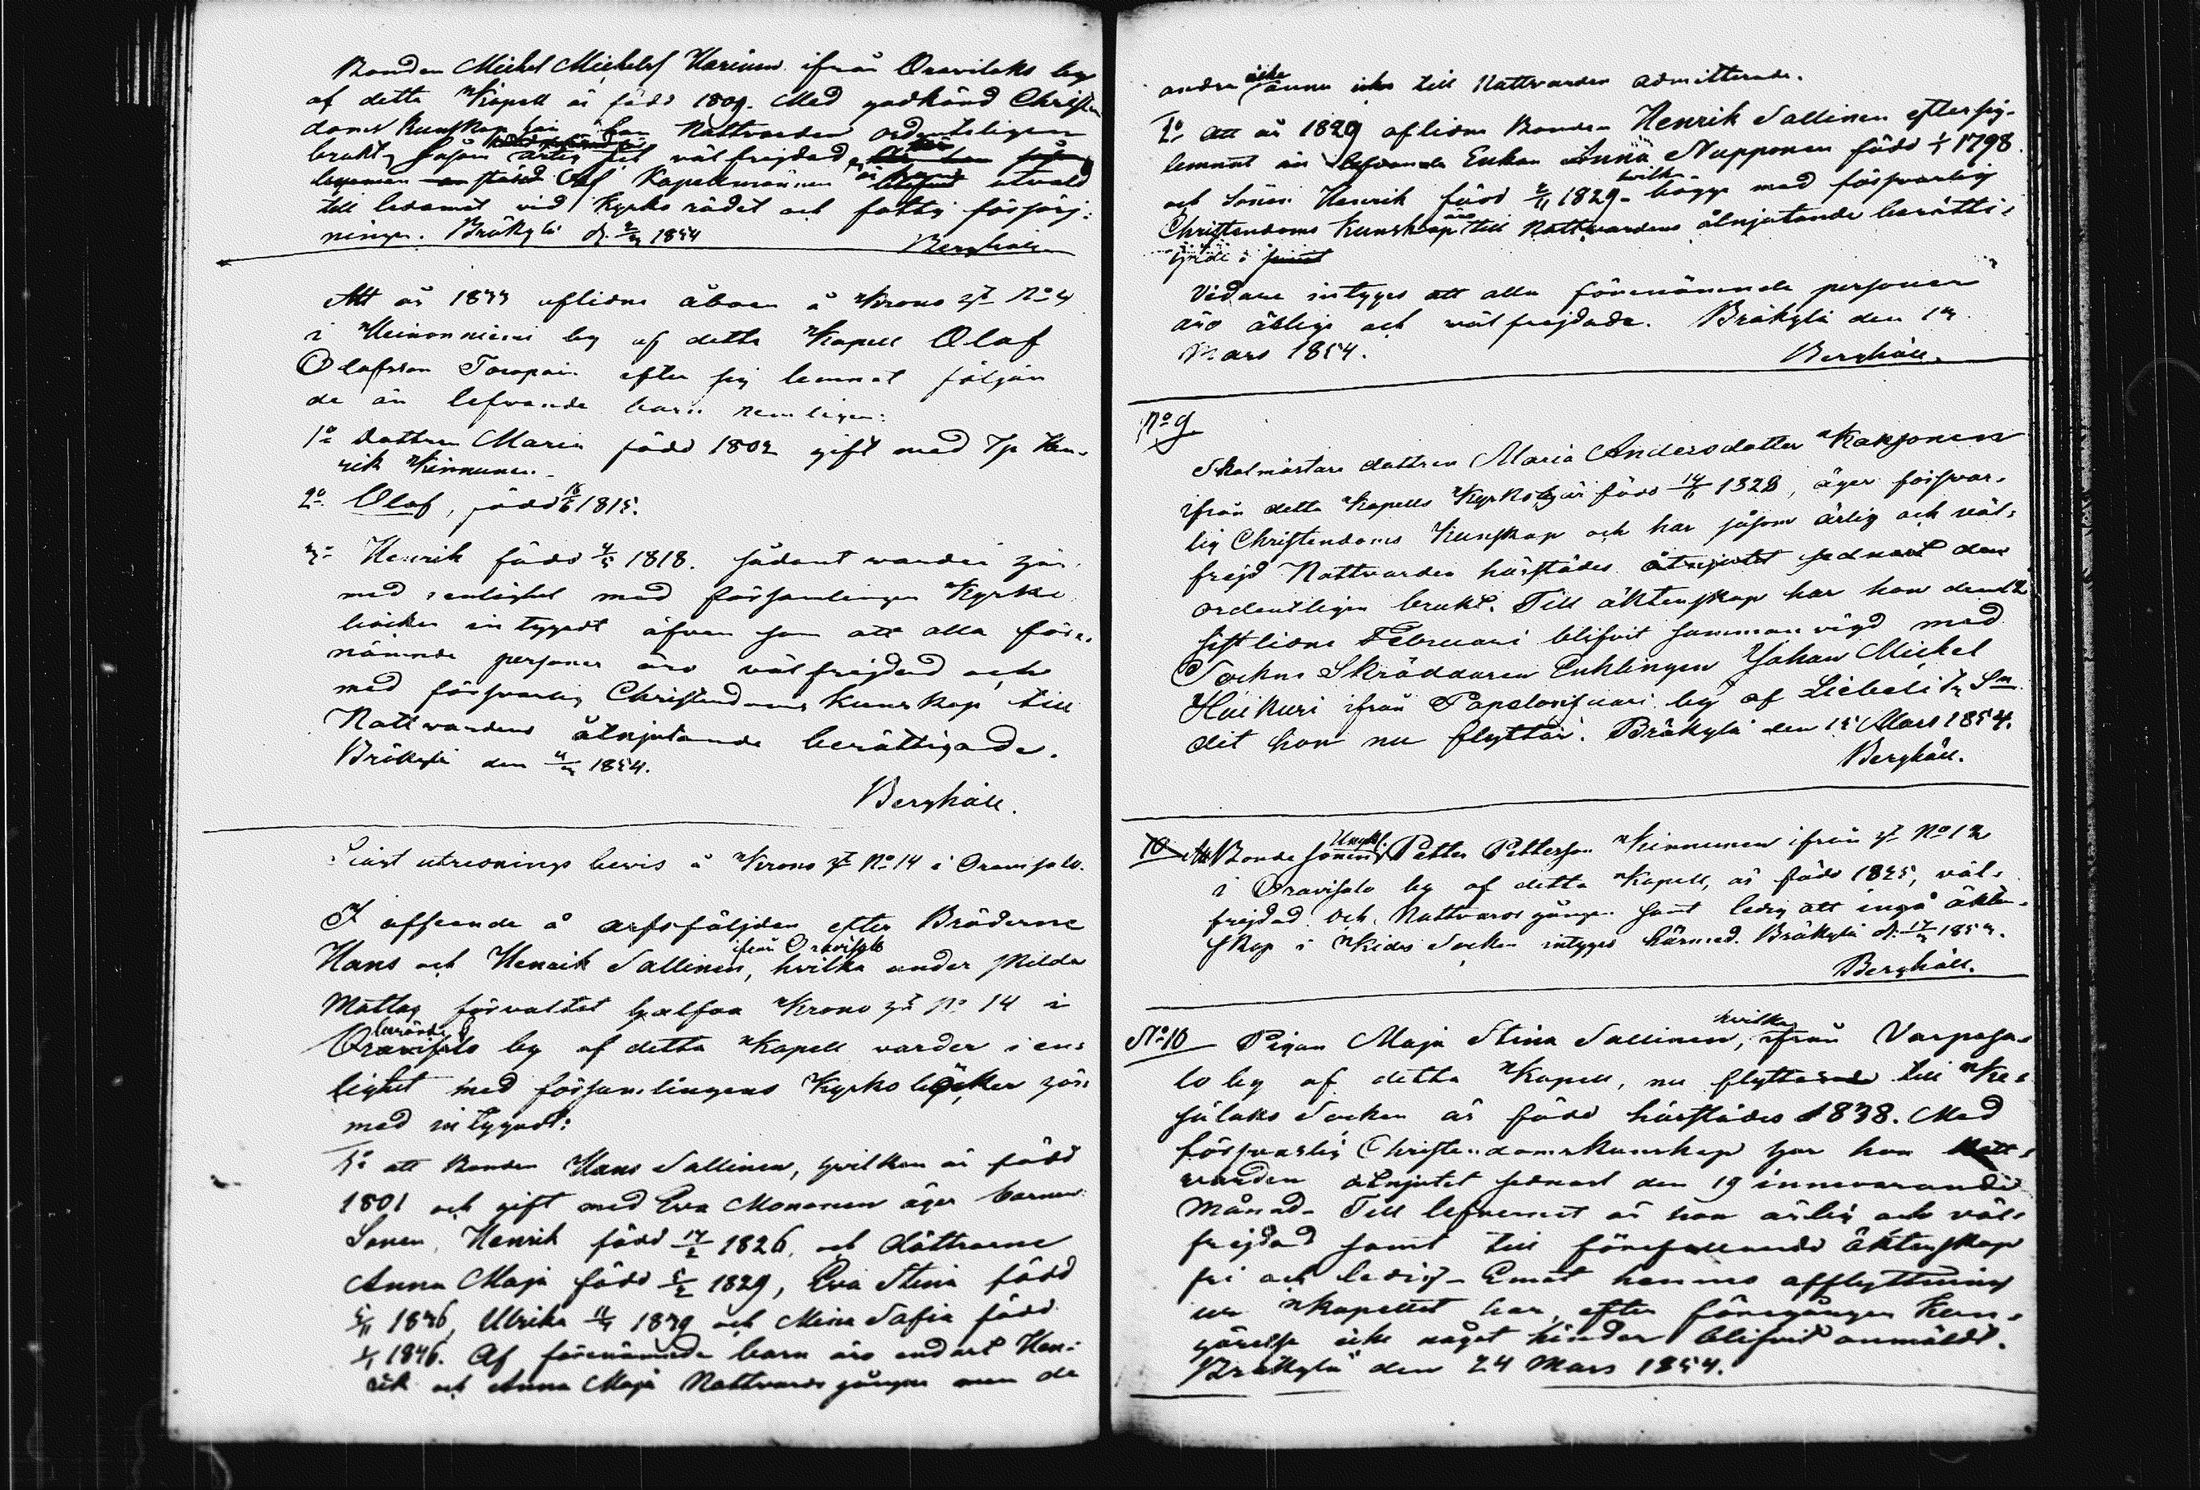 Bonden Michel Michelsf Harinen ifrån Oravilaks by
af detta Kapell är född 1809. Med godkänd Christen
doms Kunskap har han Nattvarden ordenteligen
brukt, såsom ärlig välfrejdad
af Kapellmännen utvald
till ledamot vid Kyrko rådet och fattig försörj-
ningen. Bräkylä d. 1854
Berghäll
Att år 1833 aflidne åboen å Krono No 4
i Heinoniemi by af detta Kapell Olof
Olofsson Toropain efter sig lemnat följan
de än lefvande barn nemligen:
1o dottren Maria född 1802 gift med Hen-
rik Kinnunen.
2o Olof, född 16/6 1815.
3o Henrik född 1818. sådant warder här-
med i enlighet med församlingens Kyrko
böcker intygadt äfven som att alla före-
nämnde personer äro välfrejdad och
med försvarlig Christendoms Kunskap till
Nattvardens åtnjutande berättigade.
Bräkylä den 1854.
Berghäll.
utrednings bevis å Krono No 14 i Oravisalo.
I afseende å arfsföljden efter Bröderne
ifrån Oravisalo
Hans och Henrik Sallinen, hvilka under skilda
Matlag förvaltat halfva Krono No 14 i
berörde
Oravisalo by af detta Kapell warder i en-
lighet med församlingens Kyrko böcker här-
med intygadt:
1o att Bonden Hans Sallinen, hvilken är född
1801 och gift med Eva Mononen äger barnen
Sonen, Henrik född 17/2 1826, och döttrarne
Anna Maja född 1829, Eva Stina född
1836, Ulrika 1839 och Mina Sofia född
1846. Af förenämnde barn äro endast Hen-
rik och Anna Maja Nattvards gångne men de
andre ännu icke till Nattvarden admitterade.
2o att år 1829 aflidne Bonden Henrik Sallinen efter sig
lemnat än lefvande Enkan Anna Nupponen född 1/1 1798
och Sonen Henrik född 1829 hvilka bägge med försvarlig
Christendoms Kunskap äro till Nattvardens åtnjutande berätti-
gade
Vidare intygas att alla förenämnde personer
äro ärlige och välfrejdade. Bräkylä den 13
Mars 1854.
Berghäll.
No 9
Skolmästare dottren Maria Andersdotter Kaksonen
ifrån detta Kapells Kyrkoby är född 14/6 1828, äger försvar-
lig Christendoms Kunskap och har såsom ärlig och väl-
frejd Nattvarden härstädes åtnjutit sednast den
ordentligen brukt. Till äktenskap har hon den 12
sistlidne Februari blifvit sammanvigd med
Sockne Skräddaren Enklingen Johan Michel
Huikuri ifrån Papelonsaari by af Liebelitz Sn
dit hon nu flyttar. Bräkylä den 15 Mars 1854.
Berghäll.
10 Att Bonde Sonen Ungk. Petter Pettersson Kinnunen ifrån No 12
i Oravisalo by af detta Kapell, är född 1825, väl-
frejdad och Nattvards gången samt ledig att ingå äkten-
skap i Kides Socken intygas härmed. Bräkylä d. 17/3 1854.
Berghäll.
No 10 Pigan Maja Stina Sallinen, hvilken ifrån Varpasa-
lo by af detta Kapell, nu flyttar till Ke-
sälaks Socken är född härstädes 1838. Med
försvarlig Christendomskunskap har hon Natt-
varden åtnjutit sednast den 19 innevarande
Månad. Till lefvernet är hon ärlig och väl-
frejdad samt till förefallande äktenskap
fri och ledig. Emot hennes afflyttning
ur Kapellet har, efter föregången kun-
görelse icke något hinder blifvit anmäldt.
Bräkylä den 24 Mars 1854.